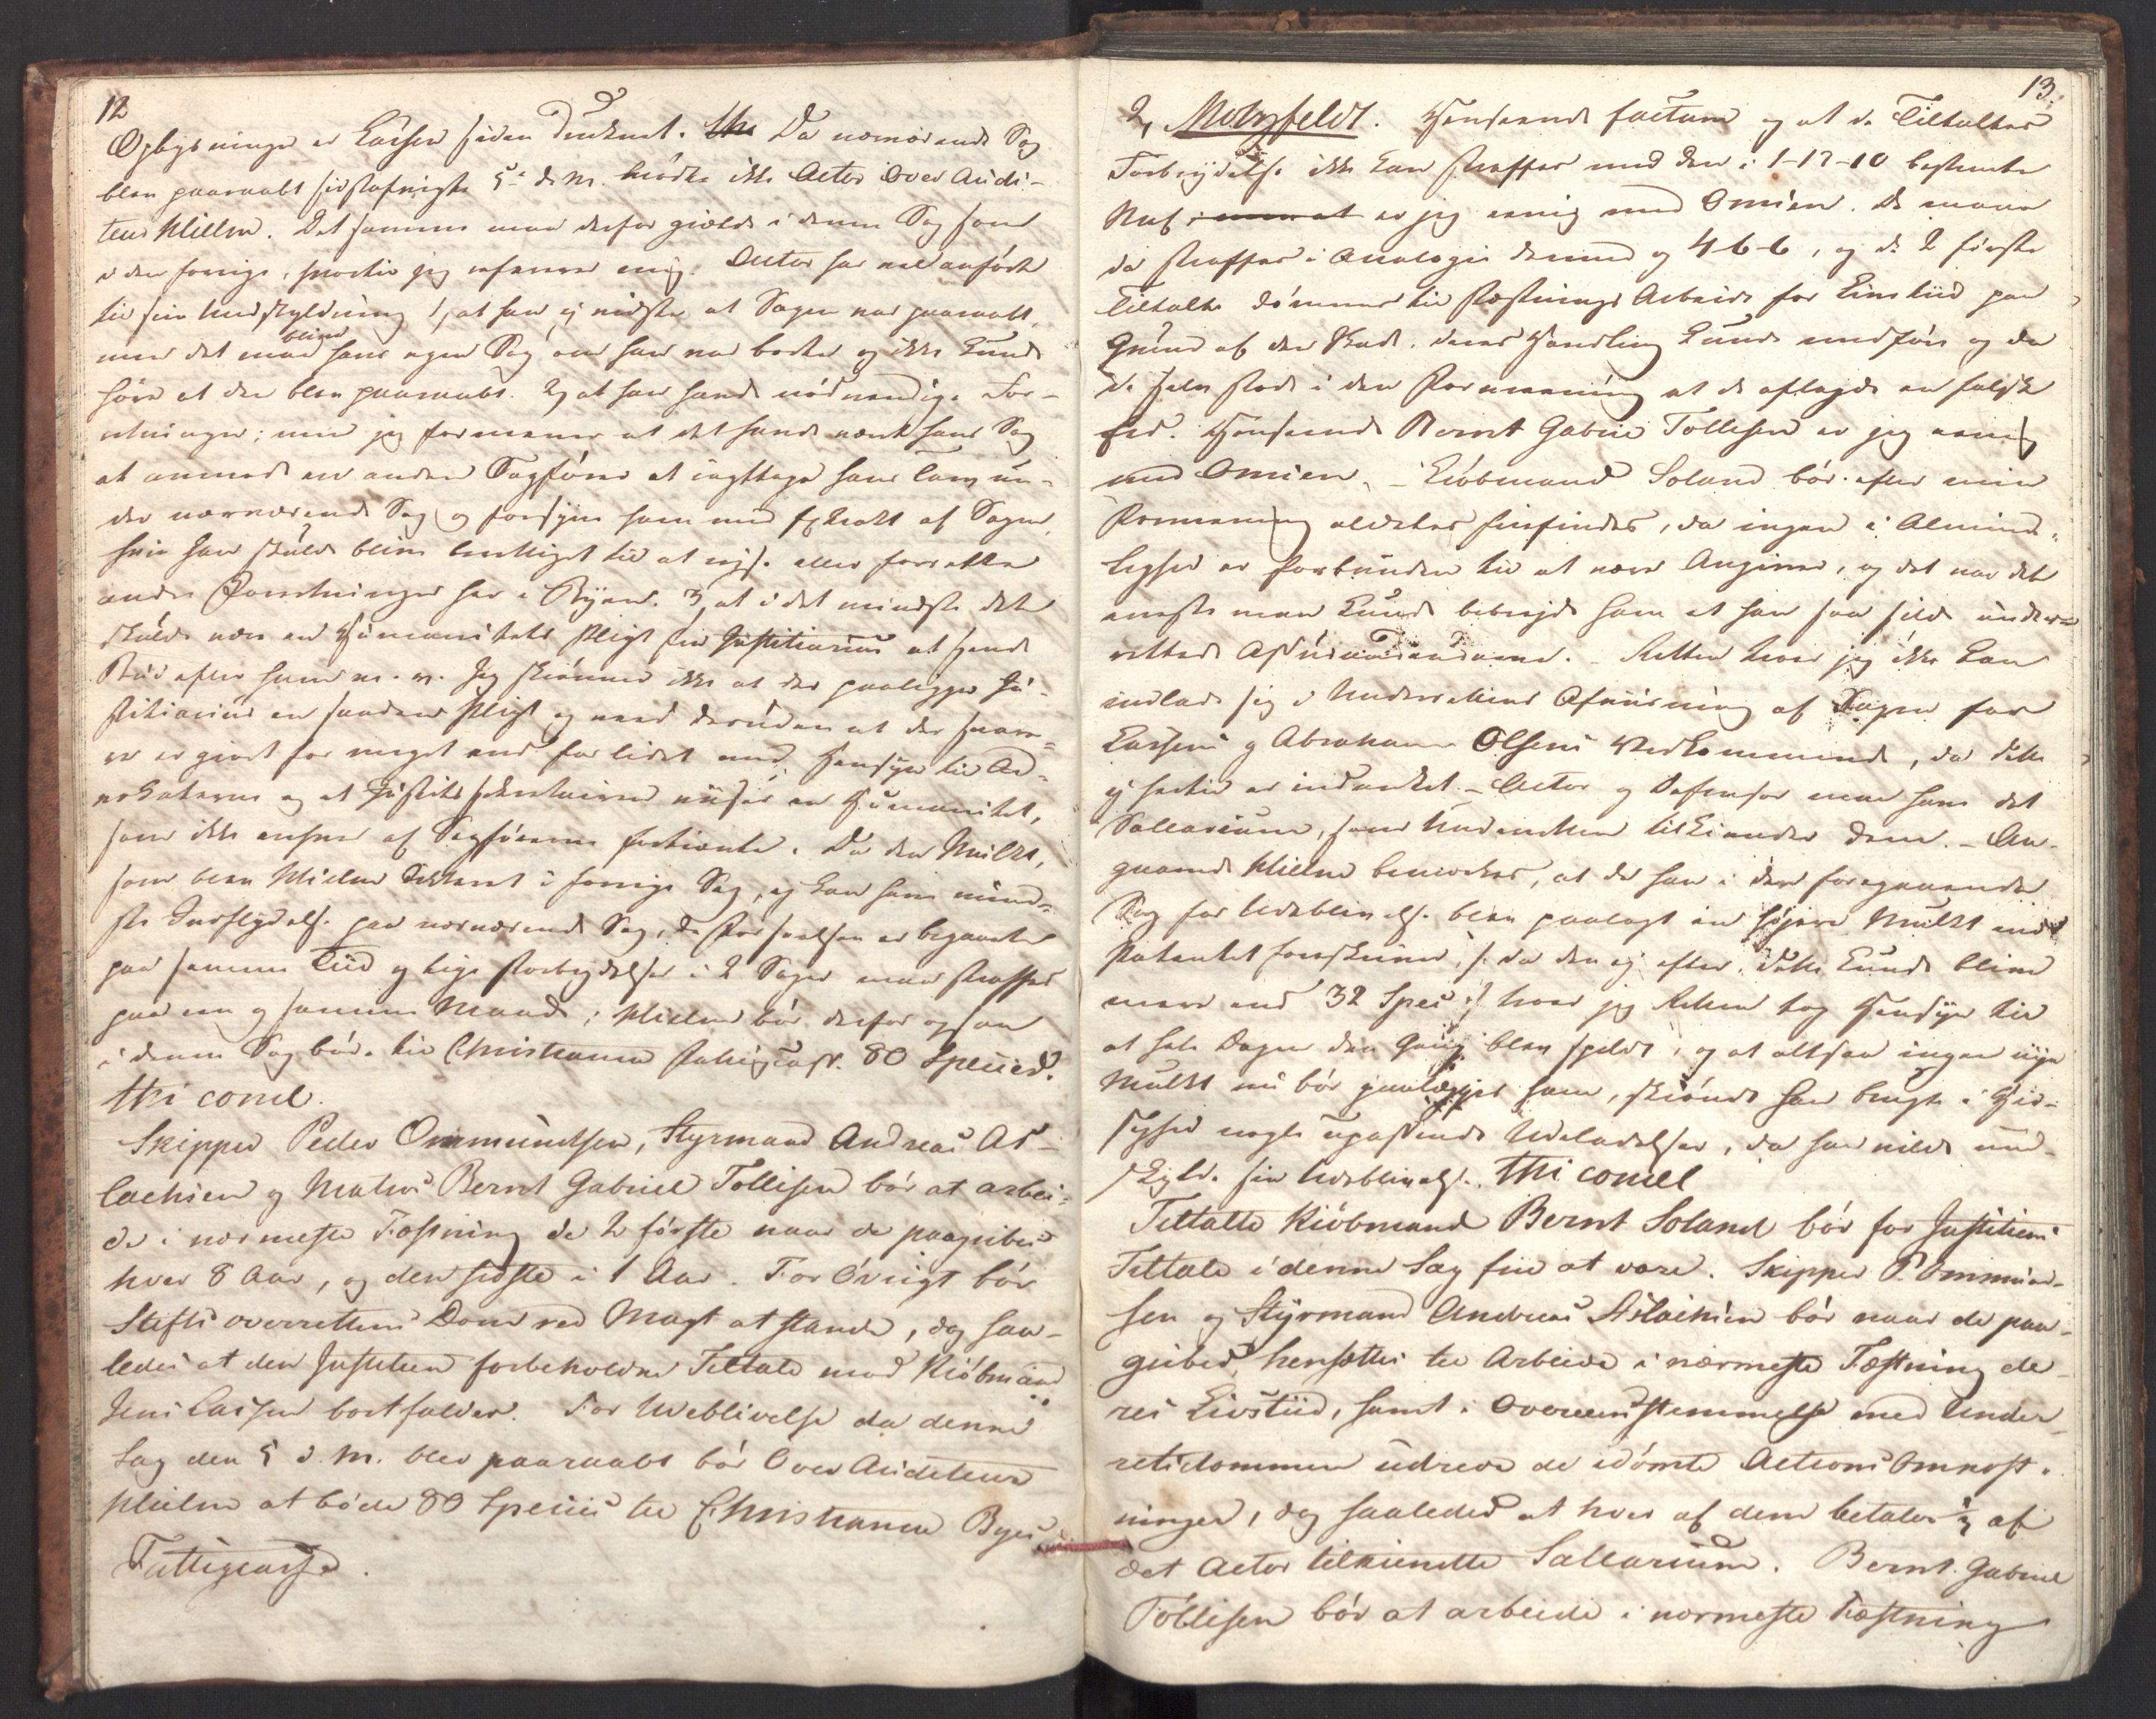 12
Opbygninge er Larsen siden Druknet. Da nærværende Sag
blev paaraabt sidstafvigte 5te d. M. mødte ikke Actor Over Audi-
teur Mielzn. Det samme maa derfor gielde i denne Sag som
i den forrige, hvortil jeg refererer mig. Actor har vel anført
til sin Undskyldning 1, at han ej vidste at Sagen var paaraabt,
men det maa blive hans egen Sag om han var borte og ikke kunde
høre at den blev paaraabt. 2, at han havde nødvendige For-
retninger; men jeg formener at det havde været hans Sag
at anmode en anden Sagfører at iagttage hans Tarv un-
der nærværende Sag og forsyne ham med Extract af Sagen,
hvis han skulde blive beskikket til at reise eller forrette
andre Forretninger her i Byen. 3, at i det mindste det
skulde være en Humanitets Pligt for Justitiarius at sende
Bud efter ham m. v. Jeg skiønner ikke at der paaligger Ju-
stitiarius en saadan Pligt og meed desuden at der snare-
re er giort for meget end for lidet med Hensyn til Ad-
vokaterne og at Justits sekretairen viiser en Humanitet,
som ikke ansees af Sagførerne fortient. Da den Mulkt,
som blev Mielzn dikteret i forrige Sag, ej kan have mind-
ste Indflydelse paa nærværende Sag, da Forseelsen er begaaet
paa samme Tiid og lige Forbrydelser i 2 Sager maa straffes
paa een og samme Maade; Mielzn bør derfor ogsaa
i denne Sag bøde til Christiania Fattigcasse 80 Specied.
thi concl.
Skipper Peder Ommundsen, Styrmand Andreas As-
lachsen og Matros Bernt Gabriel Tollisen bør at arbei-
de i nærmeste Fæstning de 2 første naar de paagribes
hver 8 Aar, og den sidste i 1 Aar. For Øvrigt bør
Stifts overrettens Dom ved Magt at stande, dog saa-
ledes at den Justitien forbeholdne Tiltale mod Kiøbmand
Jens Larsen bortfalder. For Udeblivelse da denne
Sag den 5 d. M. blev paaraabt bør Over Auditeur
Mielzn at bøde 80 Species til Christiania Byes
Fattigcasse.
13.
2, Motzfeldt. Henseende factum og at de Tiltaltes
Forbrydelse ikke kan straffes med den i 1-13-10 bestemte
Straf er jeg eenig med Omsen. De maae
da straffes i Analogie dermed og 4-6-6, og de 2 første
Tiltalte dømmes til Fæstnings Arbeide for Livstiid paa
Grund af den Skade deres Handling kunde medføre og da
de selv stode i den Formeening at de aflagde en falsk
Eed. Henseende Bernt Gabriel Tollisen er jeg eenig
med Omsen. - Kiøbmand Soland bør efter min
Formeening aldeles frifindes, da ingen i Alminde-
lighed er forbunden til at være Angiver, og det var det
eneste man kunde bebreide ham at han saa silde under-
rettede Assuradeurerne. - Retten troer jeg ikke kan
indlade sig i Underrettens Afviisning af Sagen for
Larsens og Abraham Olsens Vedkommende, da dette
ej hertil er indanket - Actor og Defensor maa have det
Sallarium, som Underretten tilkiender dem. - An-
gaaende Mielzn bemærkes, at da han i den foregaaende
Sag for Udeblivelse blev paalagt en høiere Mulkt end
Patentet foreskriver, s. da den ej efter dette kunde blive
mere end 32 Species hvor jeg Retten tog Hensyn til
at hele Dagen den Gang blev spildt, og at altsaa ingen nye
Mulkt nu bør paalægges ham, skiønt han brugte i Hid-
sighed nogle upassende Udeladelser, da han vilde und-
skylde sin Udeblivelse. thi concl
Tiltalte Kiöbmand Bernt Soland bør for Justitiens
Tiltale i denne Sag frie at være. Skipper P. Ommund-
sen og Styrmand Andreas Aslachsen bør naar de paa-
gribes, hensættes til Arbeide i nærmeste Fæstning de-
res Livstiid, samt i Overeensstemmelse med Under-
retsdommen udrede de idømte Actions Omkost-
ninger, dog saaledes at hver af dem betaler ½ af
det Actor tilkiendte Sallarium. Bernt Gabriel
Tollisen bør at arbeide i nærmeste Fæstning